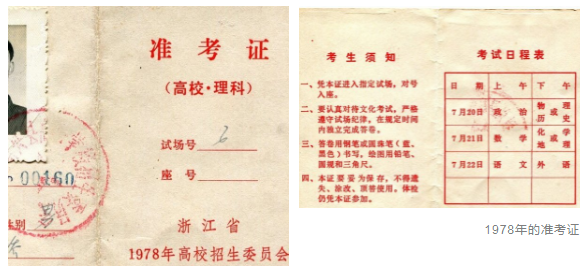 准考证
(高校·理科)
试场号 6
座号
00160
性别
浙江省
1978年高校招生委员会
考生须知
一、凭本证进入指定试场，对号
入座。
二、要认真对待文化考试，严格
遵守试场纪律，在规定时间
内独立完成答卷。
三、答卷用钢笔或圆珠笔（蓝、
黑色）书写，绘图用铅笔、
圆规和三角尺。
四、本证要妥为保存，不得遗
失、涂改、顶替使用。体检
仍凭本证参加。
考试日程表
日期 上午 下午
7月20日 政治 物理 历史
7月21日 数学 化学 或 地理
7月22日 语文 外语
1978年的准考证